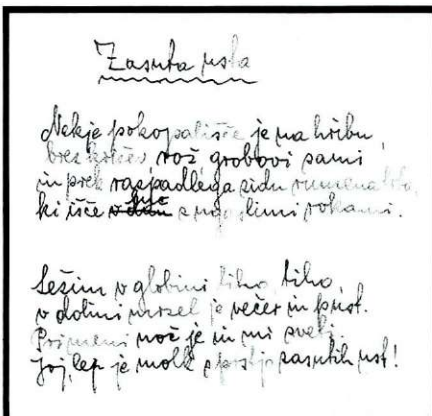 Zasuta usta
Nekje pokopališče je na hribu,
brez križev rož grobovi sami
in prek razpadlega zidu rumena
ki išče luč z rokami.
Ležim v globini tiho, tiho,
v dolini mrzel je večer in pust.
Pri meni nož je in mi sveti.
Joj, lep je molk s prstjo zasutih ust!